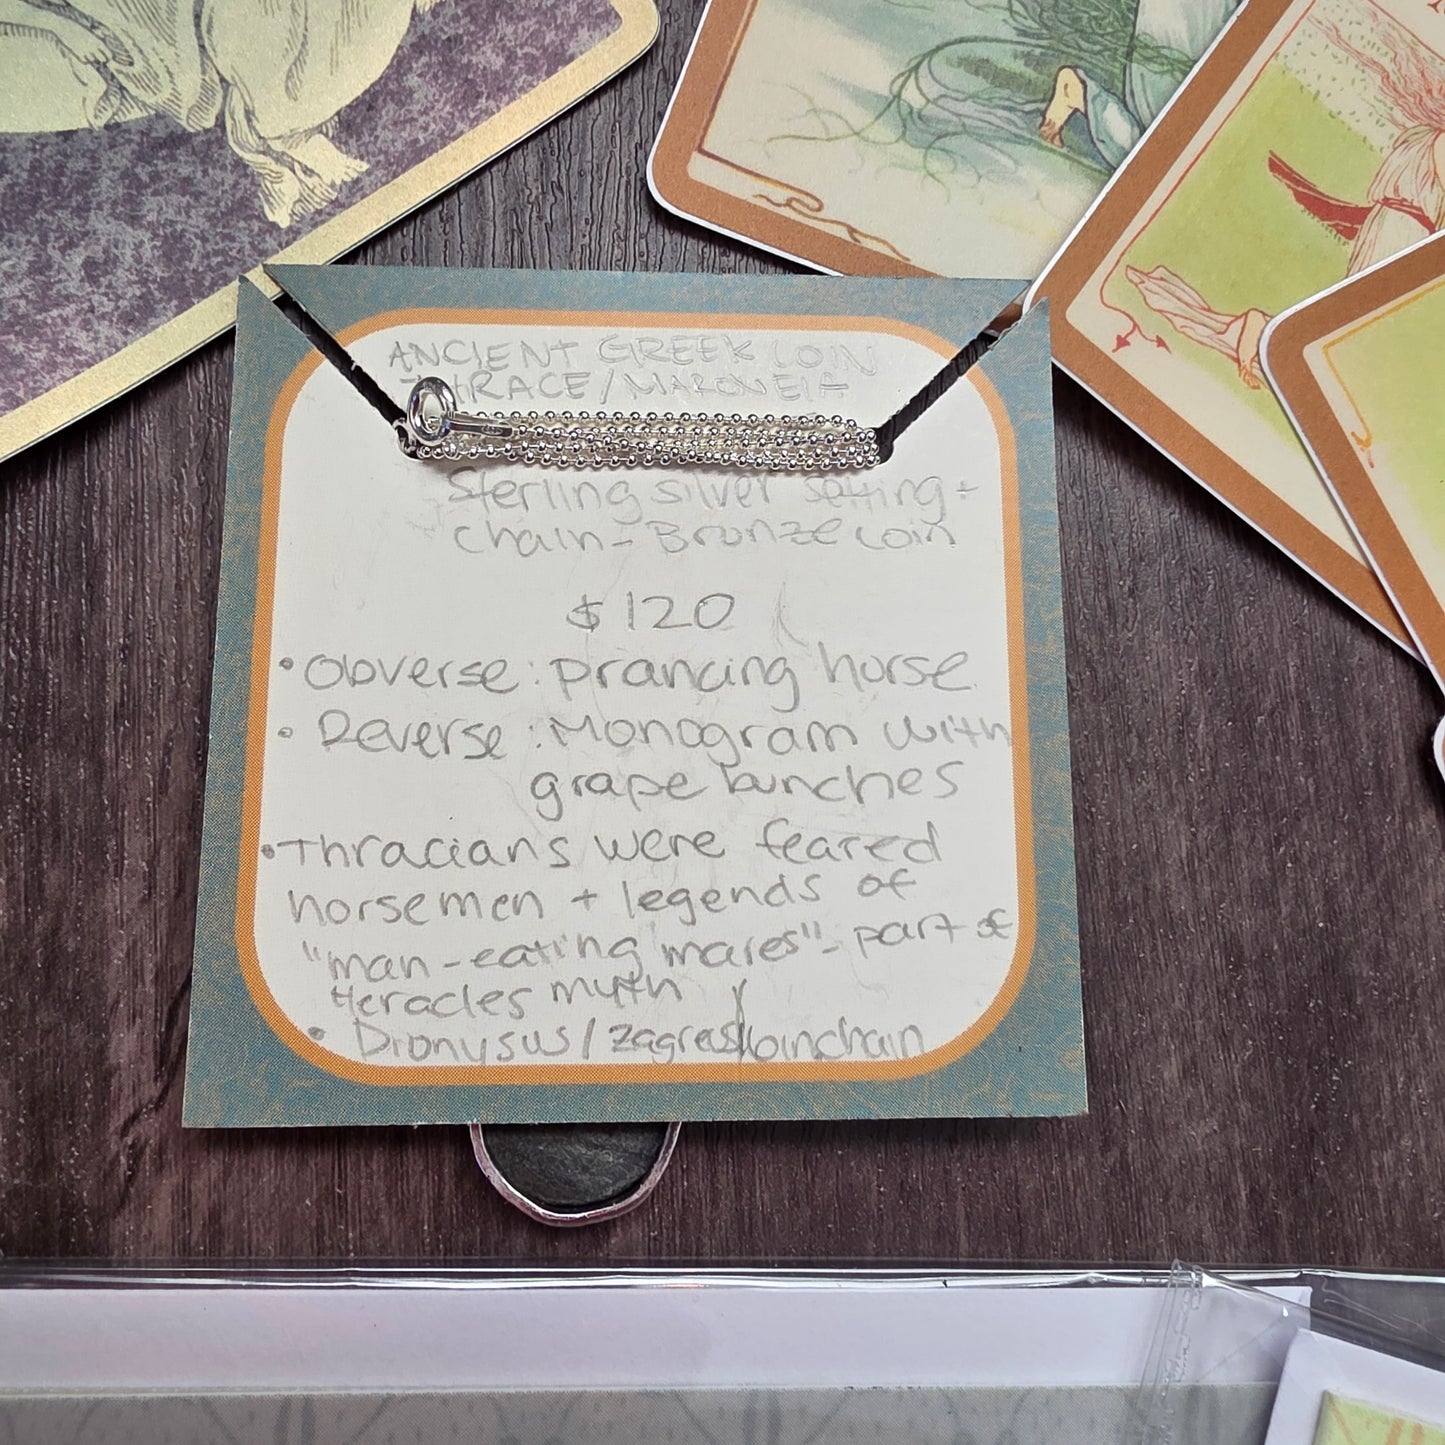 ANCIENT GREEK COIN
THRACE/MARONEIA
Sterling silver setting +
chain - Bronze coin
$120
• Obverse: prancing horse
• Reverse: Monogram with
grape bunches
• Thracians were feared
horsemen + legends of
"man-eating mares" - part of
Heracles myth
• Dionysus/Zagreus coinchain